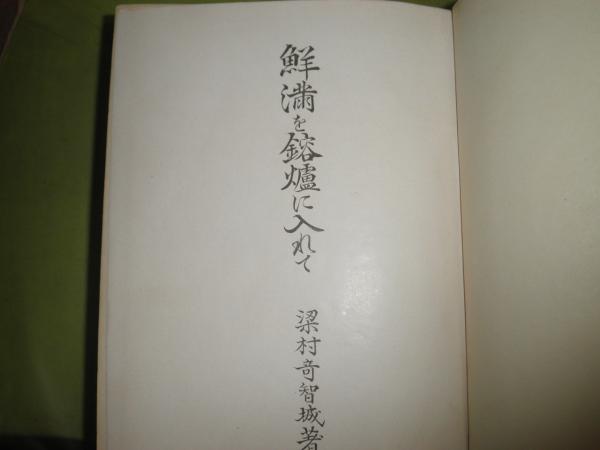 鮮満を鎔爐に入れて
梁村奇智城著